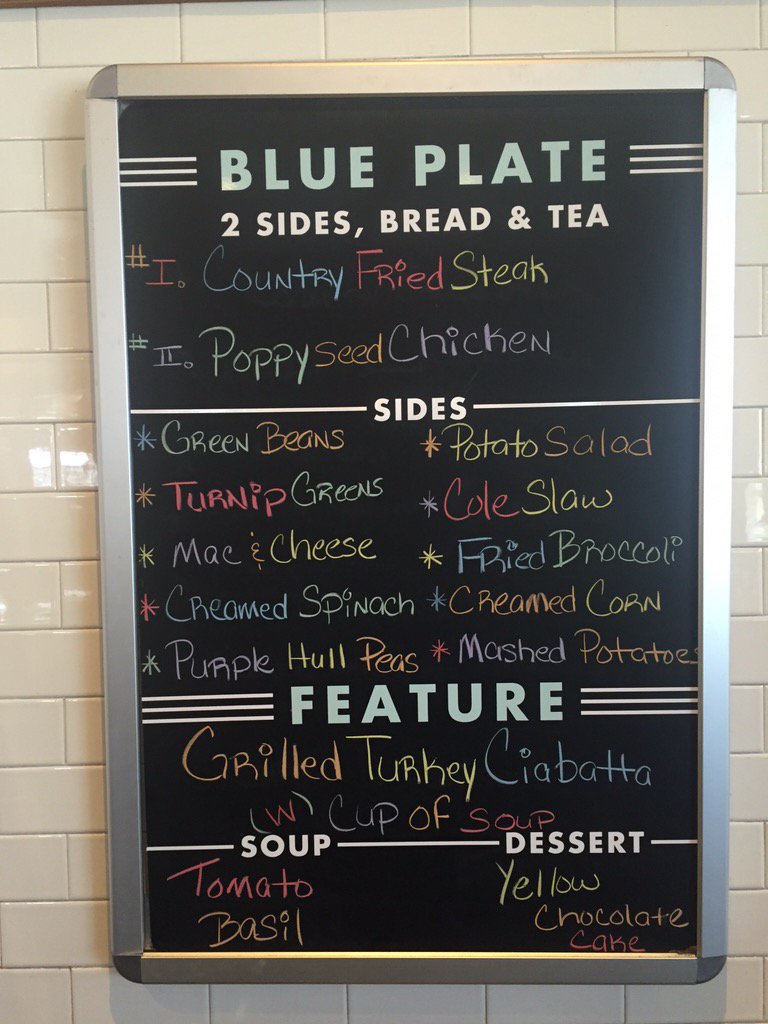 BLUE PLATE
2 SIDES, BREAD & TEA
#I. Country Fried Steak
#II. Poppy Seed Chicken
SIDES
* Green Beans
* Turnip Greens
* Mac & Cheese
* Creamed Spinach
* Purple Hull Peas
* Potato Salad
* Cole Slaw
* Fried Broccoli
* Creamed Corn
* Mashed Potatoes
FEATURE
Grilled Turkey Ciabatta
(W) Cup of Soup
SOUP
Tomato
Basil
DESSERT
Yellow
Chocolate
Cake